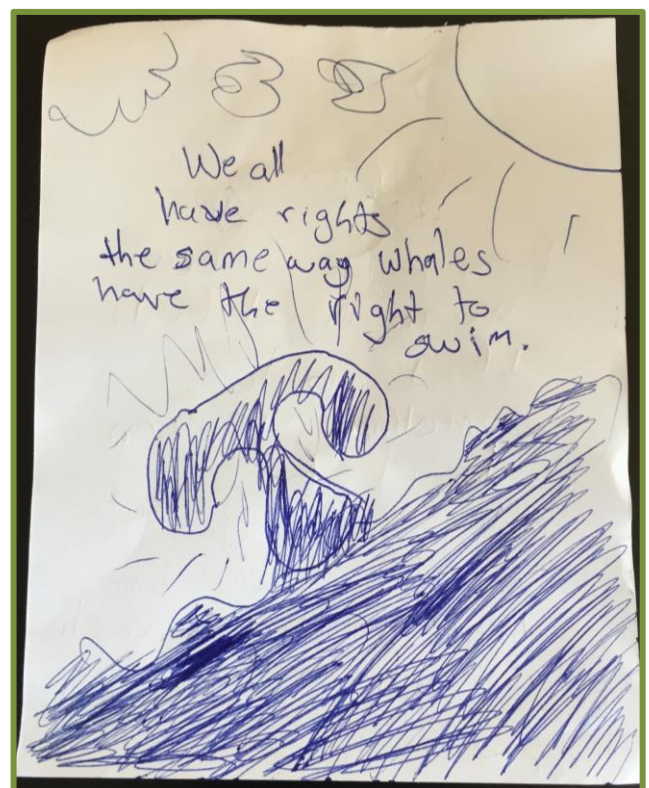 We all
have rights
the same way whales
have the right to
swim.